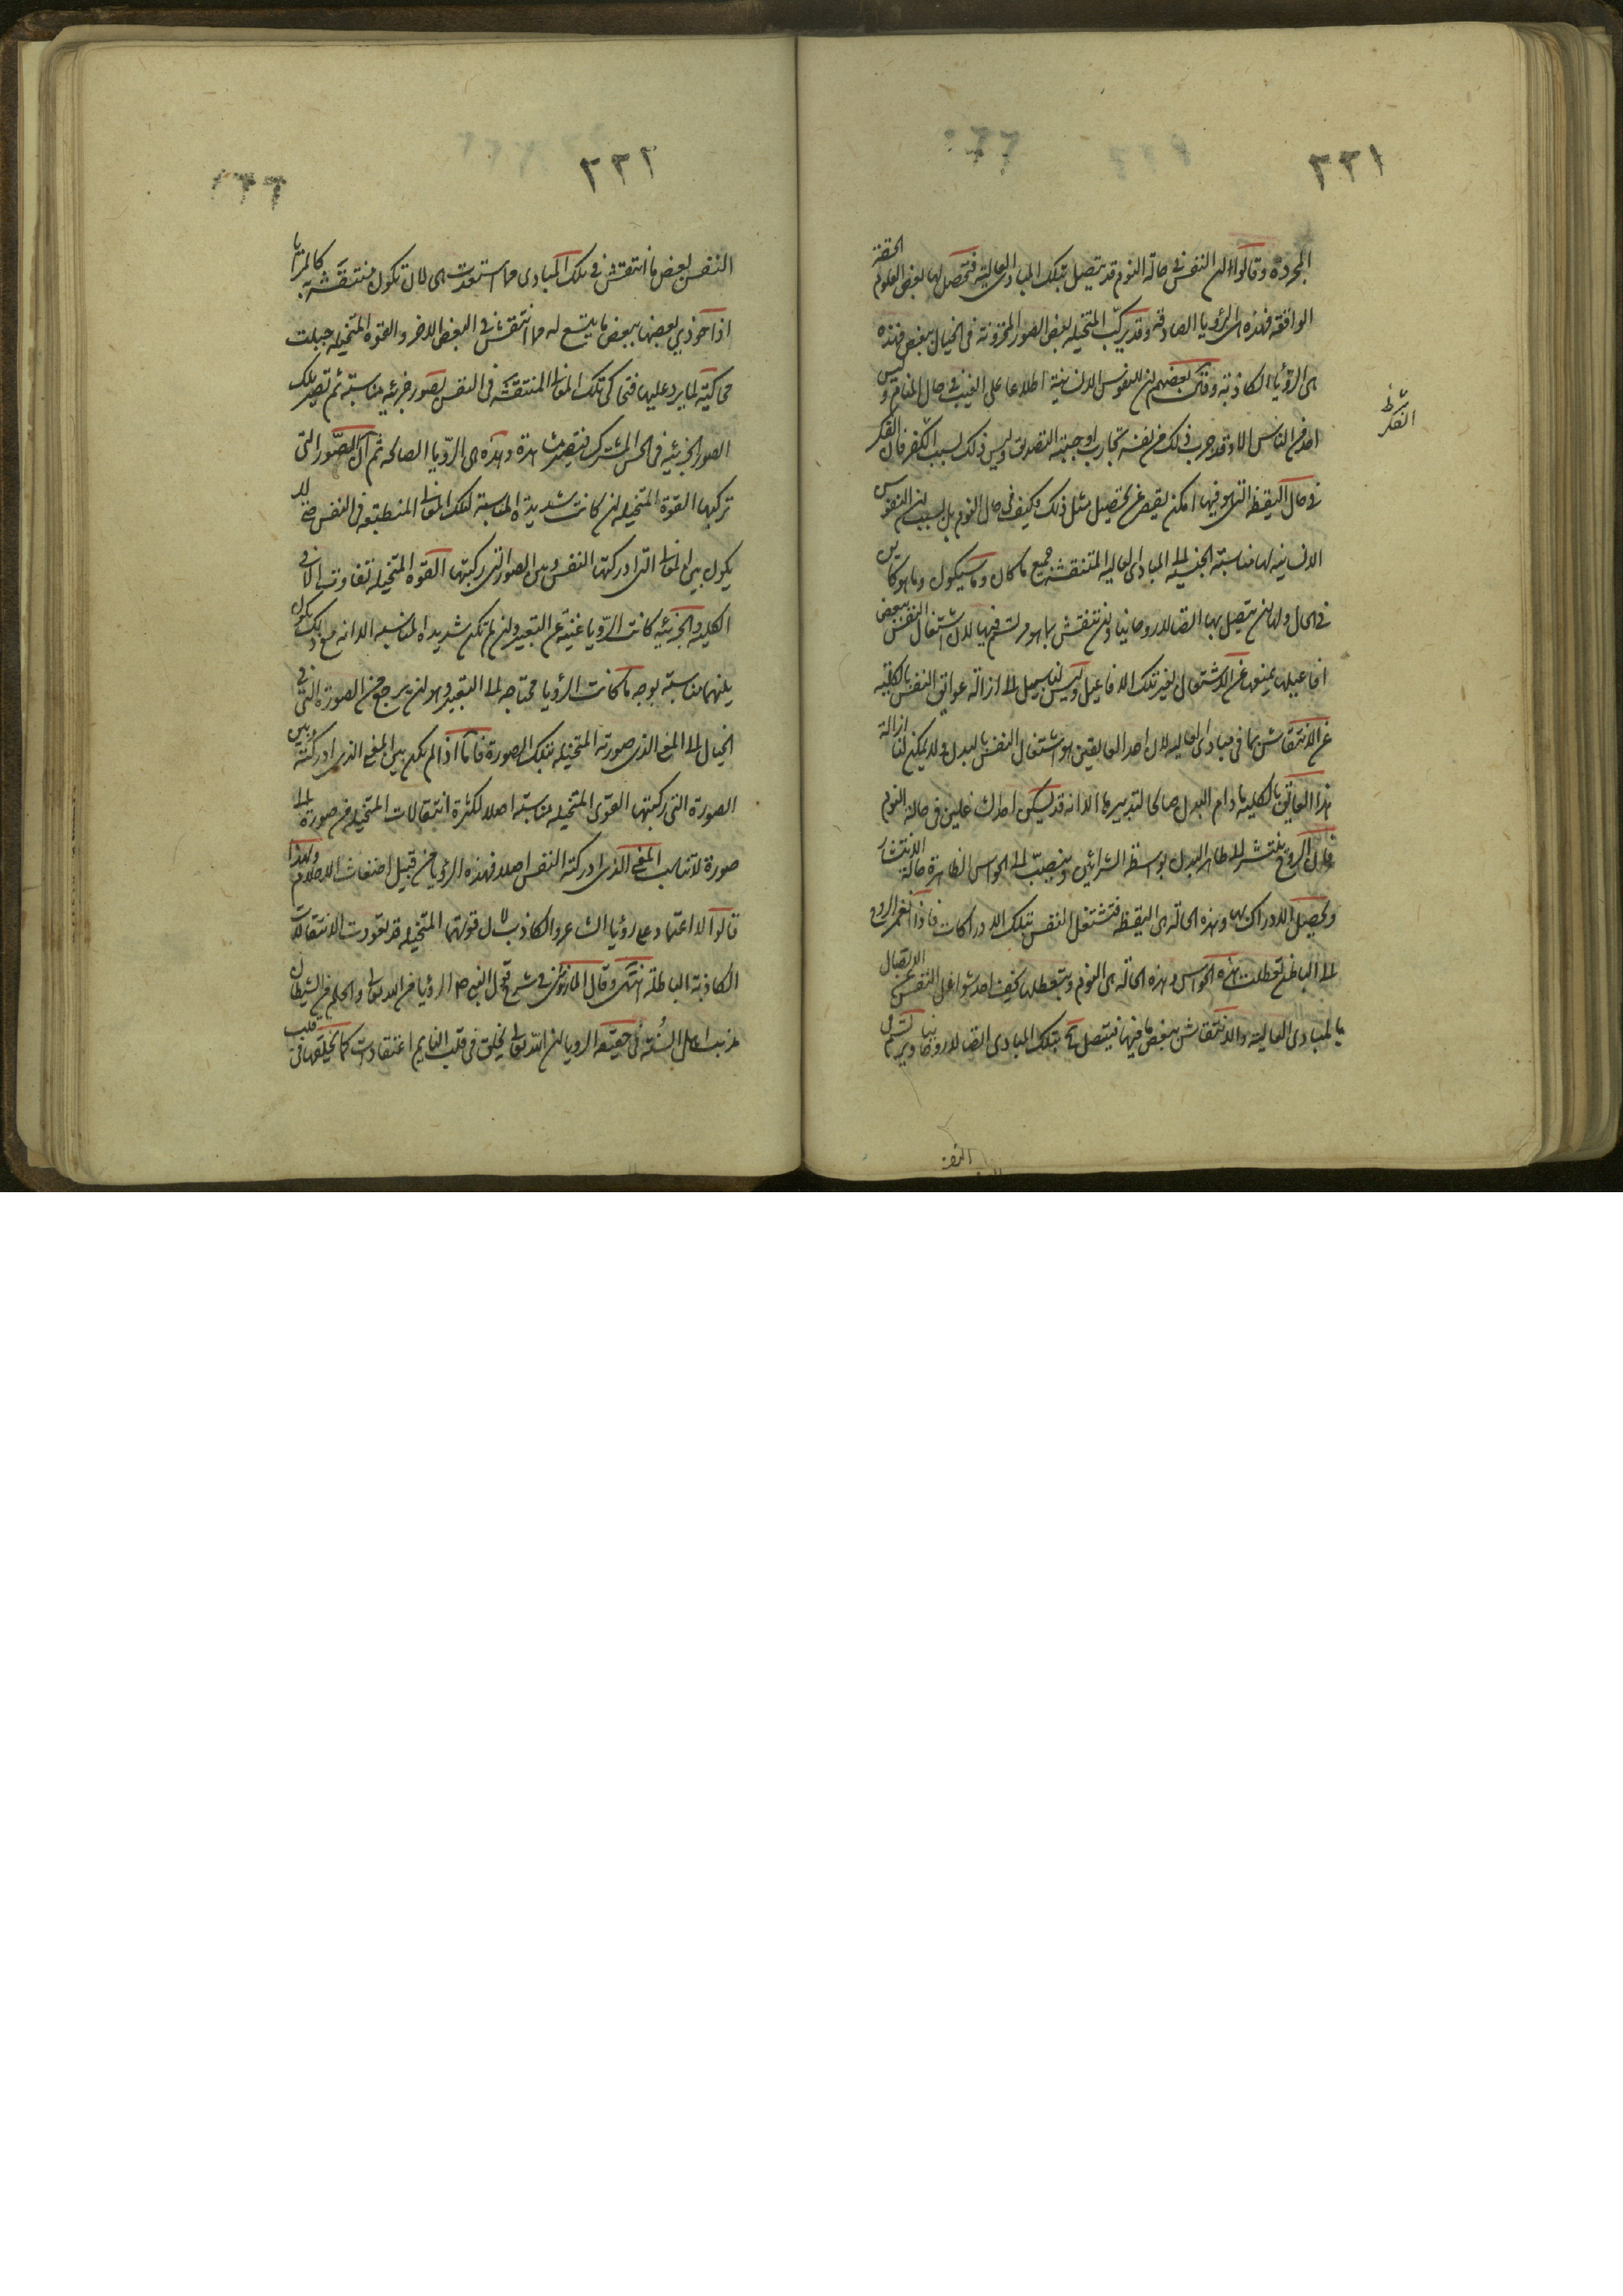 ٢٢١
المجردة وقالوا ان النفس في حالة النوم قد يتصل بتلك المبادى العالية فتحصل لها بعض العلوم الحقة
الواقعة فهذه هى الرؤيا الصادقة وقد يركب المتخيلة بعض الصور المخزونة في الخيال ببعض فهذه
هى الرؤيا الكاذبة وقال بعضهم ان للنفوس الانسانية اطلاعا على الغيب في حال المنام وليس
احد من الناس الا وقد جرب ذلك من نفسه تجارب اوجبته التصديق وليس ذلك بسبب الفكر فان الفكر
في حال اليقظة التي هو فيها امكن يقصر عن تحصيل مثل ذلك فكيف في حال النوم بل بسبب ان النفوس
الانسانية لها مناسبة الجنسية الى المبادى العالية المنتقشة بجميع ما كان وما سيكون وما هو كائن
في الحال ولها ان يتصل بها اتصالا روحانيا وان تنتقش بما هو مرتسم فيها لان اشتغال النفس ببعض
افاعيلها يمنعها عن الاشتغال بغير تلك الافاعيل وليس لنا سبيل الى ازالة عوائق النفس بالكلية
عن الانتقاش بما في المبادى العالية لان احد العائقين هو اشتغال النفس بالبدن ولا يمكن لنا ازالة
هذا العائق بالكلية ما دام البدن صالحا لتدبيرها الا انه قد يسكن احد الشاغلين في حالة النوم
فان الروح ينتشر الى ظاهر البدن بواسطة الشرائين وينصب الى الحواس الظاهرة حالة الانتشار
ويحصل الادراك بها وهذه الحالة هى اليقظة فتشتغل النفس بتلك الادراكات فاذا انغمر الروح
الى الباطن تعطلت هذه الحواس وهذه الحالة هى النوم وبتعطلها يخف احد شواغل النفس عن الاتصال
بالمبادى العالية والانتقاش ببعض ما فيها فيتصل ح بتلك المبادى اتصالا روحانيا ويرتسم في
الفكر ظ
النفس
٢٢٢
النفس بعض ما انتقش في تلك المبادى مما استعدت هى لان تكون منتقشة به كالمرايا
اذا حوذي بعضها ببعض ما يتسع له مما انتقش في البعض الاخر والقوة المتخيلة جبلت
محاكية لما يرد عليها فتحاكى تلك المعاني المنتقشة في النفس بصور جزئية مناسبة ثم تصير تلك
الصور الجزئية في الحس المشترك فتصير مشاهدة وهذه هى الرؤيا الصالحة ثم ان الصور التى
تركبها القوة المتخيلة ان كانت شديدة المناسبة لتلك المعاني المنطبعة في النفس حتى لا
يكون بين المعاني التى ادركتها النفس وبين الصور التى ركبتها القوة المتخيلة تفاوت الا في
الكلية والجزئية كانت الرؤيا غنية عن التعبير وان لم تكن شديدة المناسبة الا انه مع ذلك يكون
بينهما مناسبة بوجه ما كانت الرؤيا محتاجة الى التعبير وهو ان يرجع من الصورة التى في
الخيال الى المعنى الذي صورته المتخيلة بتلك الصورة فاما اذا لم يكن بين المعنى الذي ادركته وبين
الصورة التى ركبتها القوى المتخيلة مناسبة اصلا لكثرة انتقالات المتخيلة من صورة الى
صورة لا تناسب المعنى الذي ادركته النفس اصلا فهذه الرؤيا من قبيل اضغاث الاحلام ولهذا
قالوا لا اعتماد على رؤيا الشاعر والكاذب لان قوتهما المتخيلة قد تعودت الانتقالات
الكاذبة الباطلة انتهى وقال المازري في شرح قول النبي ص الرؤيا من الله تعالى والحلم من الشيطان
مذهب اهل السنة في حقيقة الرويا ان الله تعالى يخلق في قلب النايم اعتقادات كما يخلقها في قلب